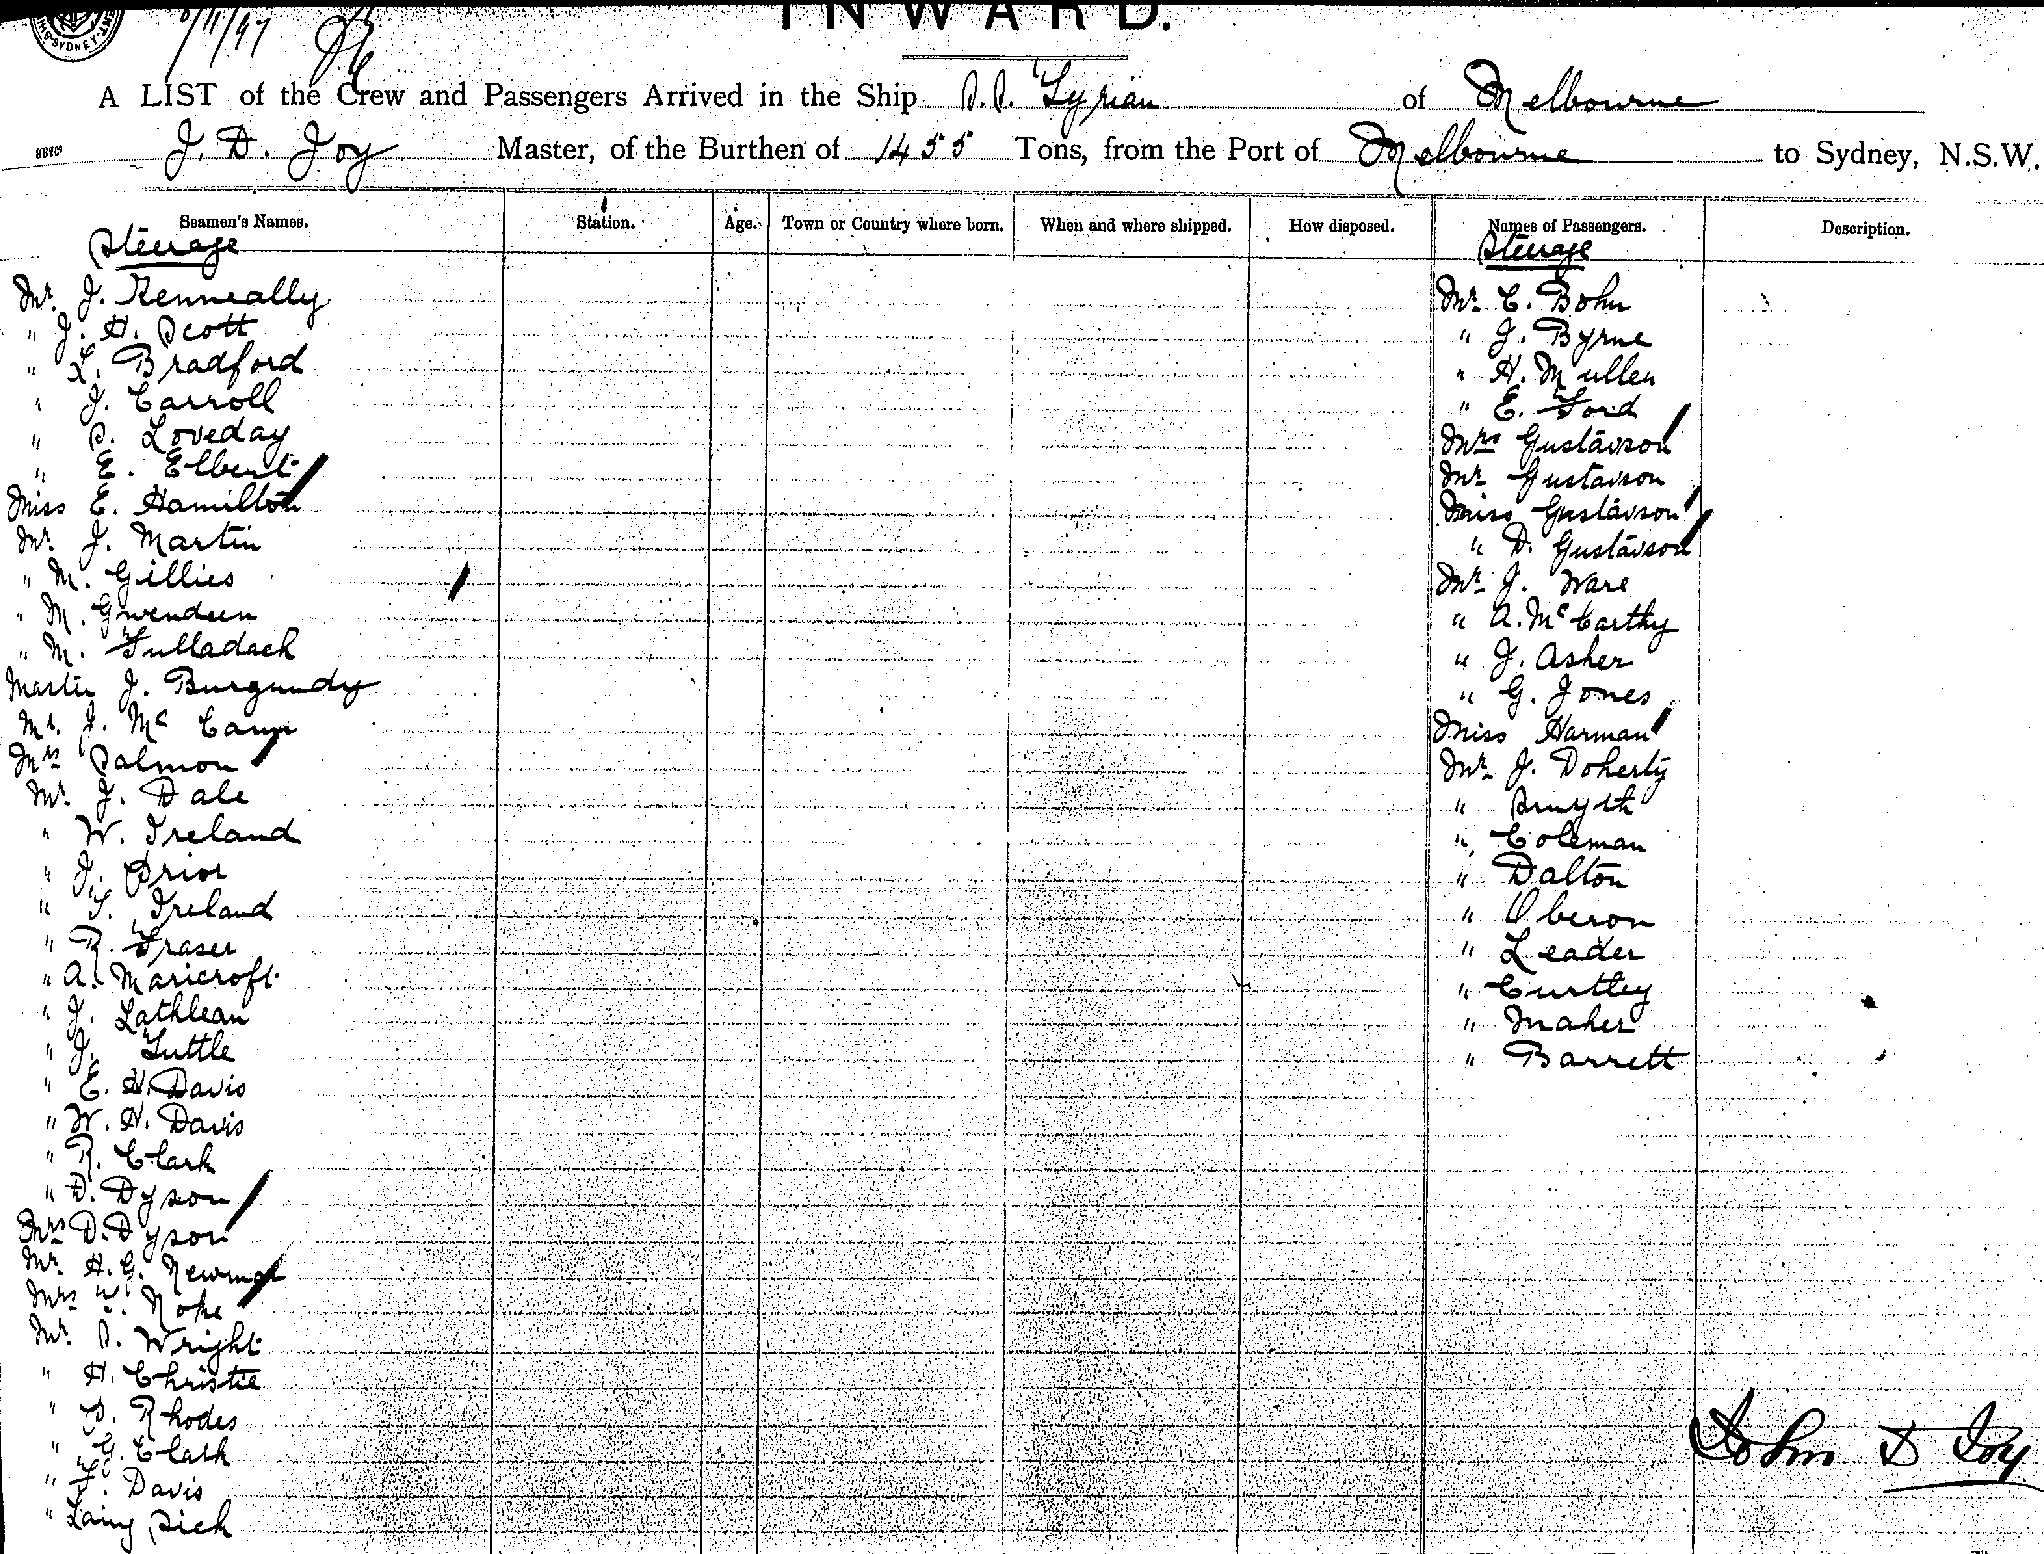 SYDNEY
6/11/97
INWARD.
A LIST of the Crew and Passengers Arrived in the Ship S.S. Tyrian of Melbourne
J. D. Joy Master, of the Burthen of 1455 Tons, from the Port of Melbourne to Sydney, N.S.W.
Seamen's Names. Station. Age. Town or Country where born. When and where shipped. How disposed. Names of Passengers. Description.
Steerage
Mr. J. Kenneally
" J. H. Scott
" L. Bradford
" J. Carroll
" S. Loveday
" E. Elbert
Miss E. Hamilton
Mr. J. Martin
" M. Gillies
" M. Gwendeen
" M. Fulladack
Master J. Burgundy
Mr. J. Mc
Mrs Salmon
Mr. J. Dale
" W. Ireland
" J. Prior
" T. Ireland
" R. Fraser
" A. Maricroft
" J. Lathlean
" J. Tuttle
" E. H. Davis
" W. H. Davis
" R. Clark
" D. Dyson
Mrs D. Dyson
Mr. H. G. Newman
Mrs Noke
Mr. S. Wright
" H. Christie
" D. Rhodes
" G. Clark
" Davis
" Laing Sick
Steerage
Mr. C. Bohn
" J. Byrne
" H. Mullen
" E. Ford
Mrs Gustavson
Mr. Gustavson
Miss Gustavson
" D. Gustavson
Mr. J. Ware
" A. McCarthy
" J. Asher
" G. Jones
Miss Harman
Mr. J. Doherty
" Smyth
" Coleman
" Dalton
" Oberon
" Leader
" Curtley
" Maher
" Barrett
John D Joy